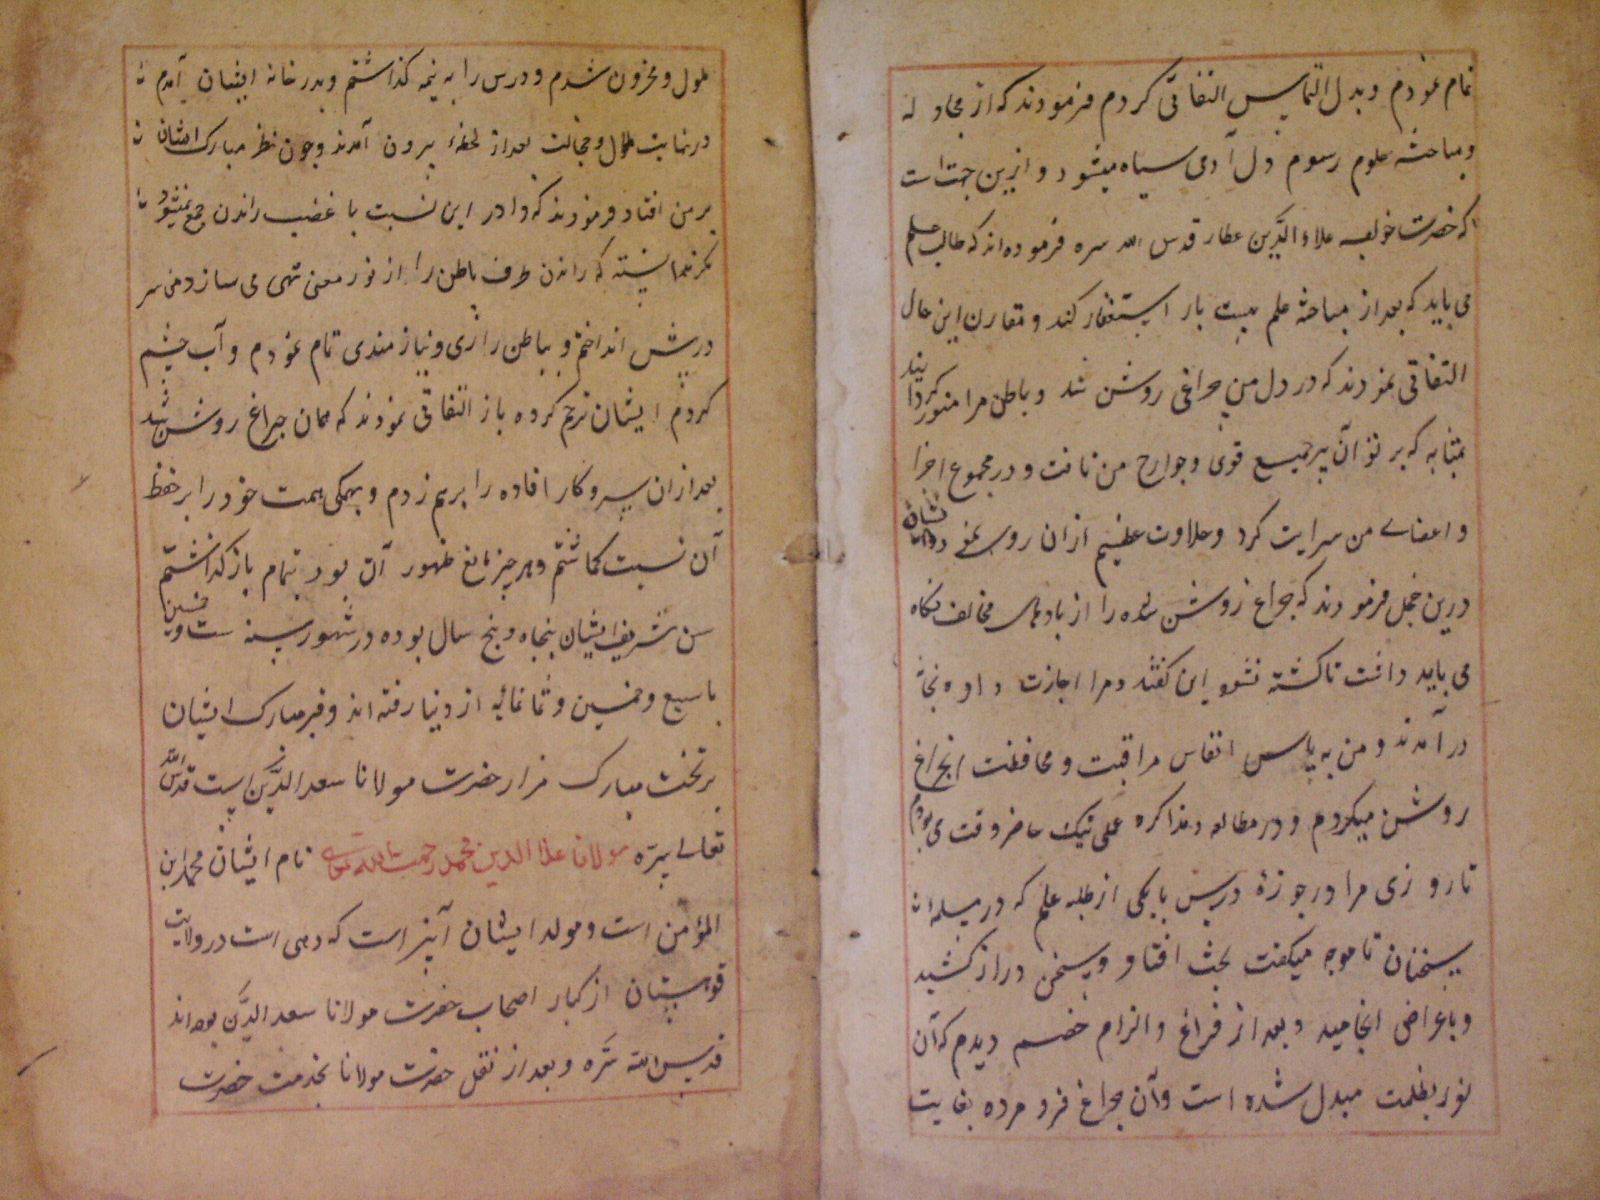 تمام نمودم و بدل التماس التفاتی کردم فرمودند که از مجادله
و مباحثه علوم رسوم دل آدمی سیاه میشود و ازین جهت است
که حضرت خواجه علاء الدین عطار قدس الله سره فرموده‌اند که طالب علم
می باید که بعد از مباحثه علم بیست بار استغفار کند و مقارن این حال
التفاتی نمودند که در دل من چراغی روشن شد و باطن مرا منور گردانید
بمثابه که پرتو آن بر جمیع قوی و جوارح من تافت و در مجموع اجزا
و اعضاے من سرایت کرد و حلاوت عظیم ازان روی نمود ایشان
درین محل فرمودند که چراغ روشن شده را از بادهای مخالف نگاه
می باید داشت تا کشته نشود این گفتند و مرا اجازت داده بخانه
در آمدند و من به پاس انفاس مراقبت و محافظت آن چراغ
روشن میکردم و در مطالعه و مذاکره علمی نیک حاضر وقت می بودم
تا روزی مرا در حوزهٔ درس با یکی از طلبه علم که در مسله
سخنان ناموجه میگفت بحث افتاد و سخن دراز کشید
و باعراض انجامید و بعد از فراغ و الزام خصم دیدم که آن
نور بظلمت مبدل شده است و آن چراغ فرو مرده بغایت
ملول و محزون شدم و درس را به نیمه گذاشتم و بدر خانه ایشان آمدم
در نهایت ملال و خجالت بعد از لحظهٔ بیرون آمدند و چون نظر مبارک ایشان
بر من افتاد فرمودند که دادر این نسبت با غضب راندن جمع نمیشود
مگر ندانسته که راندن ظرف باطن را از نور معنی تهی می سازد من سر
در پیش انداختم و بباطن زاری و نیازمندی تمام نمودم و آب چشم
کردم ایشان ترحم کرده باز التفاتی نمودند که همان چراغ روشن شد
بعد ازان سر و کار افاده را برهم زدم و بهمگی همت خود را بر حفظ
آن نسبت گماشتم و هر چیز مانع ظهور آن بود بتمام باز گذاشتم
سن شریف ایشان پنجاه و پنج سال بوده در شهور سنه ست و خمسین
یا سبع و خمسین و ثمانمائه از دنیا رفته اند و قبر مبارک ایشان
بر تخت مبارک مزار حضرت مولانا سعد الدین است قدس الله
تعالے سره مولانا علاء الدین محمد رحمت الله علیه نام ایشان محمد ابن
المؤمن است و مولد ایشان آبیز است که دهی است در ولایت
قوهستان از کبار اصحاب حضرت مولانا سعد الدین بوده‌اند
قدس الله سره و بعد از نقل حضرت مولانا بخدمت حضرت